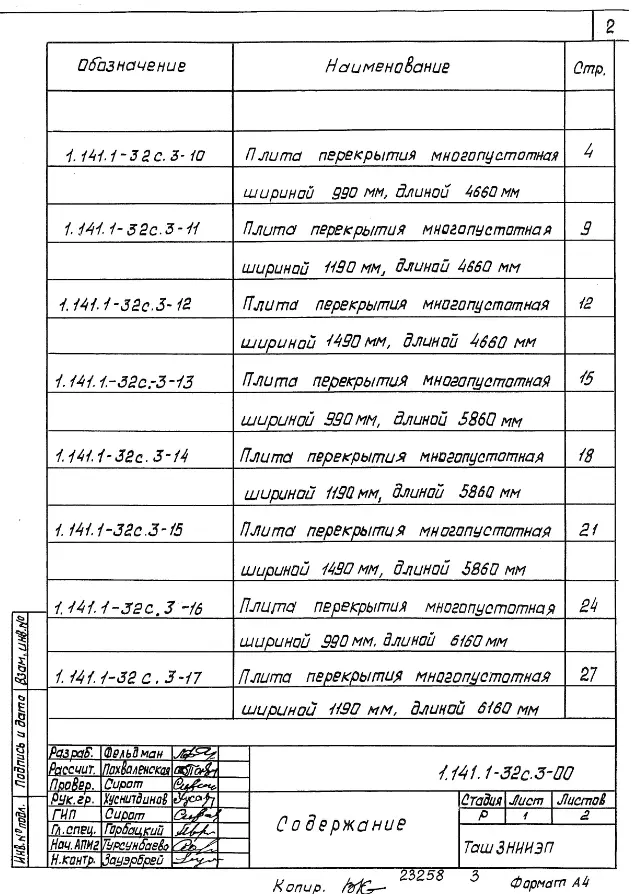 2
Обозначение Наименование Стр.
1.141.1-32с.3-10 Плита перекрытия многопустотная 4
шириной 990 мм, длиной 4660 мм
1.141.1-32с.3-11 Плита перекрытия многопустотная 9
шириной 1190 мм, длиной 4660 мм
1.141.1-32с.3-12 Плита перекрытия многопустотная 12
шириной 1490 мм, длиной 4660 мм
1.141.1-32с.-3-13 Плита перекрытия многопустотная 15
шириной 990 мм, длиной 5860 мм
1.141.1-32с.3-14 Плита перекрытия многопустотная 18
шириной 1190 мм, длиной 5860 мм
1.141.1-32с.3-15 Плита перекрытия многопустотная 21
шириной 1490 мм, длиной 5860 мм
1.141.1-32с.3-16 Плита перекрытия многопустотная 24
шириной 990 мм, длиной 6160 мм
1.141.1-32с.3-17 Плита перекрытия многопустотная 27
шириной 1190 мм, длиной 6160 мм
Взам. инв.№
Подпись и дата
Инв.№ подл.
Разраб. Фельдман
Рассчит. Похваленская
Провер. Сирот
Рук.гр. Хуснитдинов
ГИП Сирот
Гл.спец. Горбацкий
Нач.АПМ2 Турсунбаево
Н.контр. Зауэрбрей
1.141.1-32с.3-00
Содержание
Стадия Лист Листов
Р 1 2
ТашЗНИИЭП
Копир. 23258 3 Формат А4